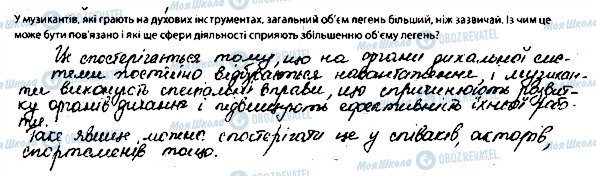 У музикантів, які грають на духових інструментах, загальний об'єм легень більший, ніж зазвичай. Із чим це
може бути пов'язано і які ще сфери діяльності сприяють збільшенню об'єму легень?
Це спостерігається тому, що на органи дихальної сис-
теми постійно відбуваються навантаження, і музикан-
ти виконують спеціальні вправи, що спричинюють розвит-
ку органів дихання і підвищують ефективність їхньої робо-
ти.
Таке явище можна спостерігати ще у співаків, акторів,
спортсменів тощо.